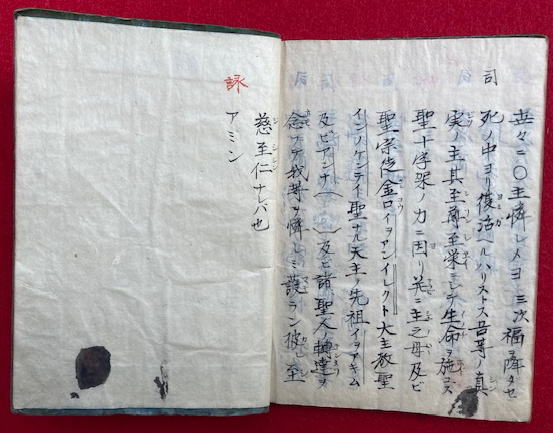 世々ニ〇主憐レメヨ 三次福ヲ降タセ
司 死ノ中ヨリ復活ヘルハリストス吾等ノ真
実ノ主其至尊至栄ニシテ生命ヲ施コス
聖十字架ノ力ニ因リ 主之母及ビ
聖宗徒金口イヲアンイレクト大主教聖
インノケンティ聖ナル天主ノ先祖イヲアキム
及ビアンナ( )及ビ諸聖人ノ轉達ヲ
我等ヲ憐レミ護ラン彼 至
慈至仁ナレバ也
詠 アミン